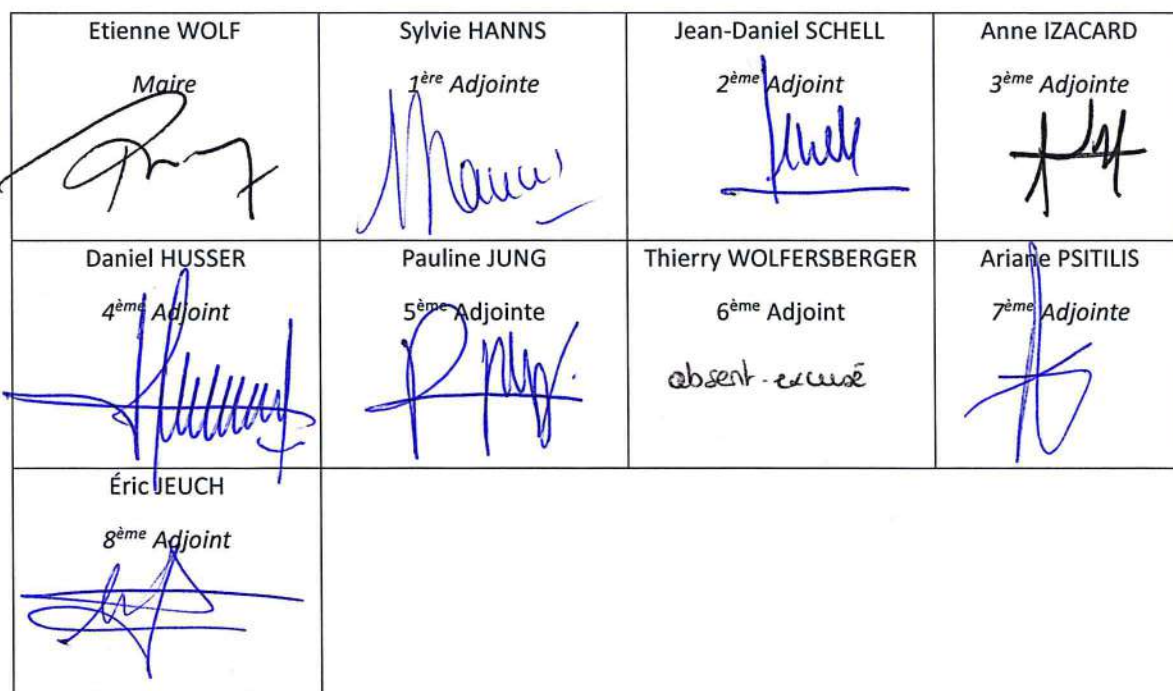 Etienne WOLF
Maire
Sylvie HANNS
1ère Adjointe
Jean-Daniel SCHELL
2ème Adjoint
Anne IZACARD
3ème Adjointe
Daniel HUSSER
4ème Adjoint
Pauline JUNG
5ème Adjointe
Thierry WOLFERSBERGER
6ème Adjoint
absent-excusé
Ariane PSITILIS
7ème Adjointe
Éric JEUCH
8ème Adjoint